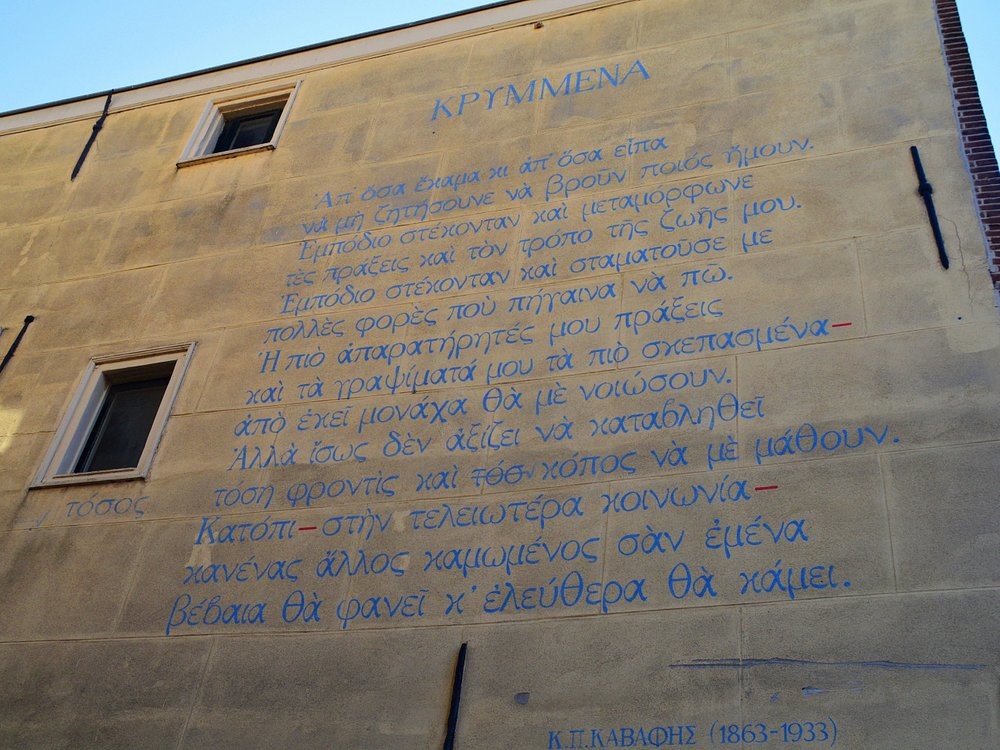 ΚΡΥΜΜΕΝΑ
Ἀπ' ὅσα ἔκαμα κι ἀπ' ὅσα εἶπα
νὰ μὴ ζητήσουνε νὰ βροῦν ποιός ἤμουν.
Ἐμπόδιο στέκονταν καὶ μεταμόρφωνε
τὲς πράξεις καὶ τὸν τρόπο τῆς ζωῆς μου.
Ἐμπόδιο στέκονταν καὶ σταματοῦσε με
πολλὲς φορὲς ποὺ πήγαινα νὰ πῶ.
Ἡ πιὸ ἀπαρατήρητές μου πράξεις
καὶ τὰ γραψίματά μου τὰ πιὸ σκεπασμένα—
ἀπὸ ἐκεῖ μονάχα θὰ μὲ νοιώσουν.
Ἀλλὰ ἴσως δὲν ἀξίζει νὰ καταβληθεῖ
τόση φροντὶς καὶ τόσν κόπος νὰ μὲ μάθουν.
√ τόσος
Κατόπι—στὴν τελειωτέρα κοινωνία—
κανένας ἄλλος καμωμένος σὰν ἐμένα
βέβαια θὰ φανεῖ κ' ἐλεύθερα θὰ κάμει.
Κ.Π.ΚΑΒΑΦΗΣ (1863-1933)